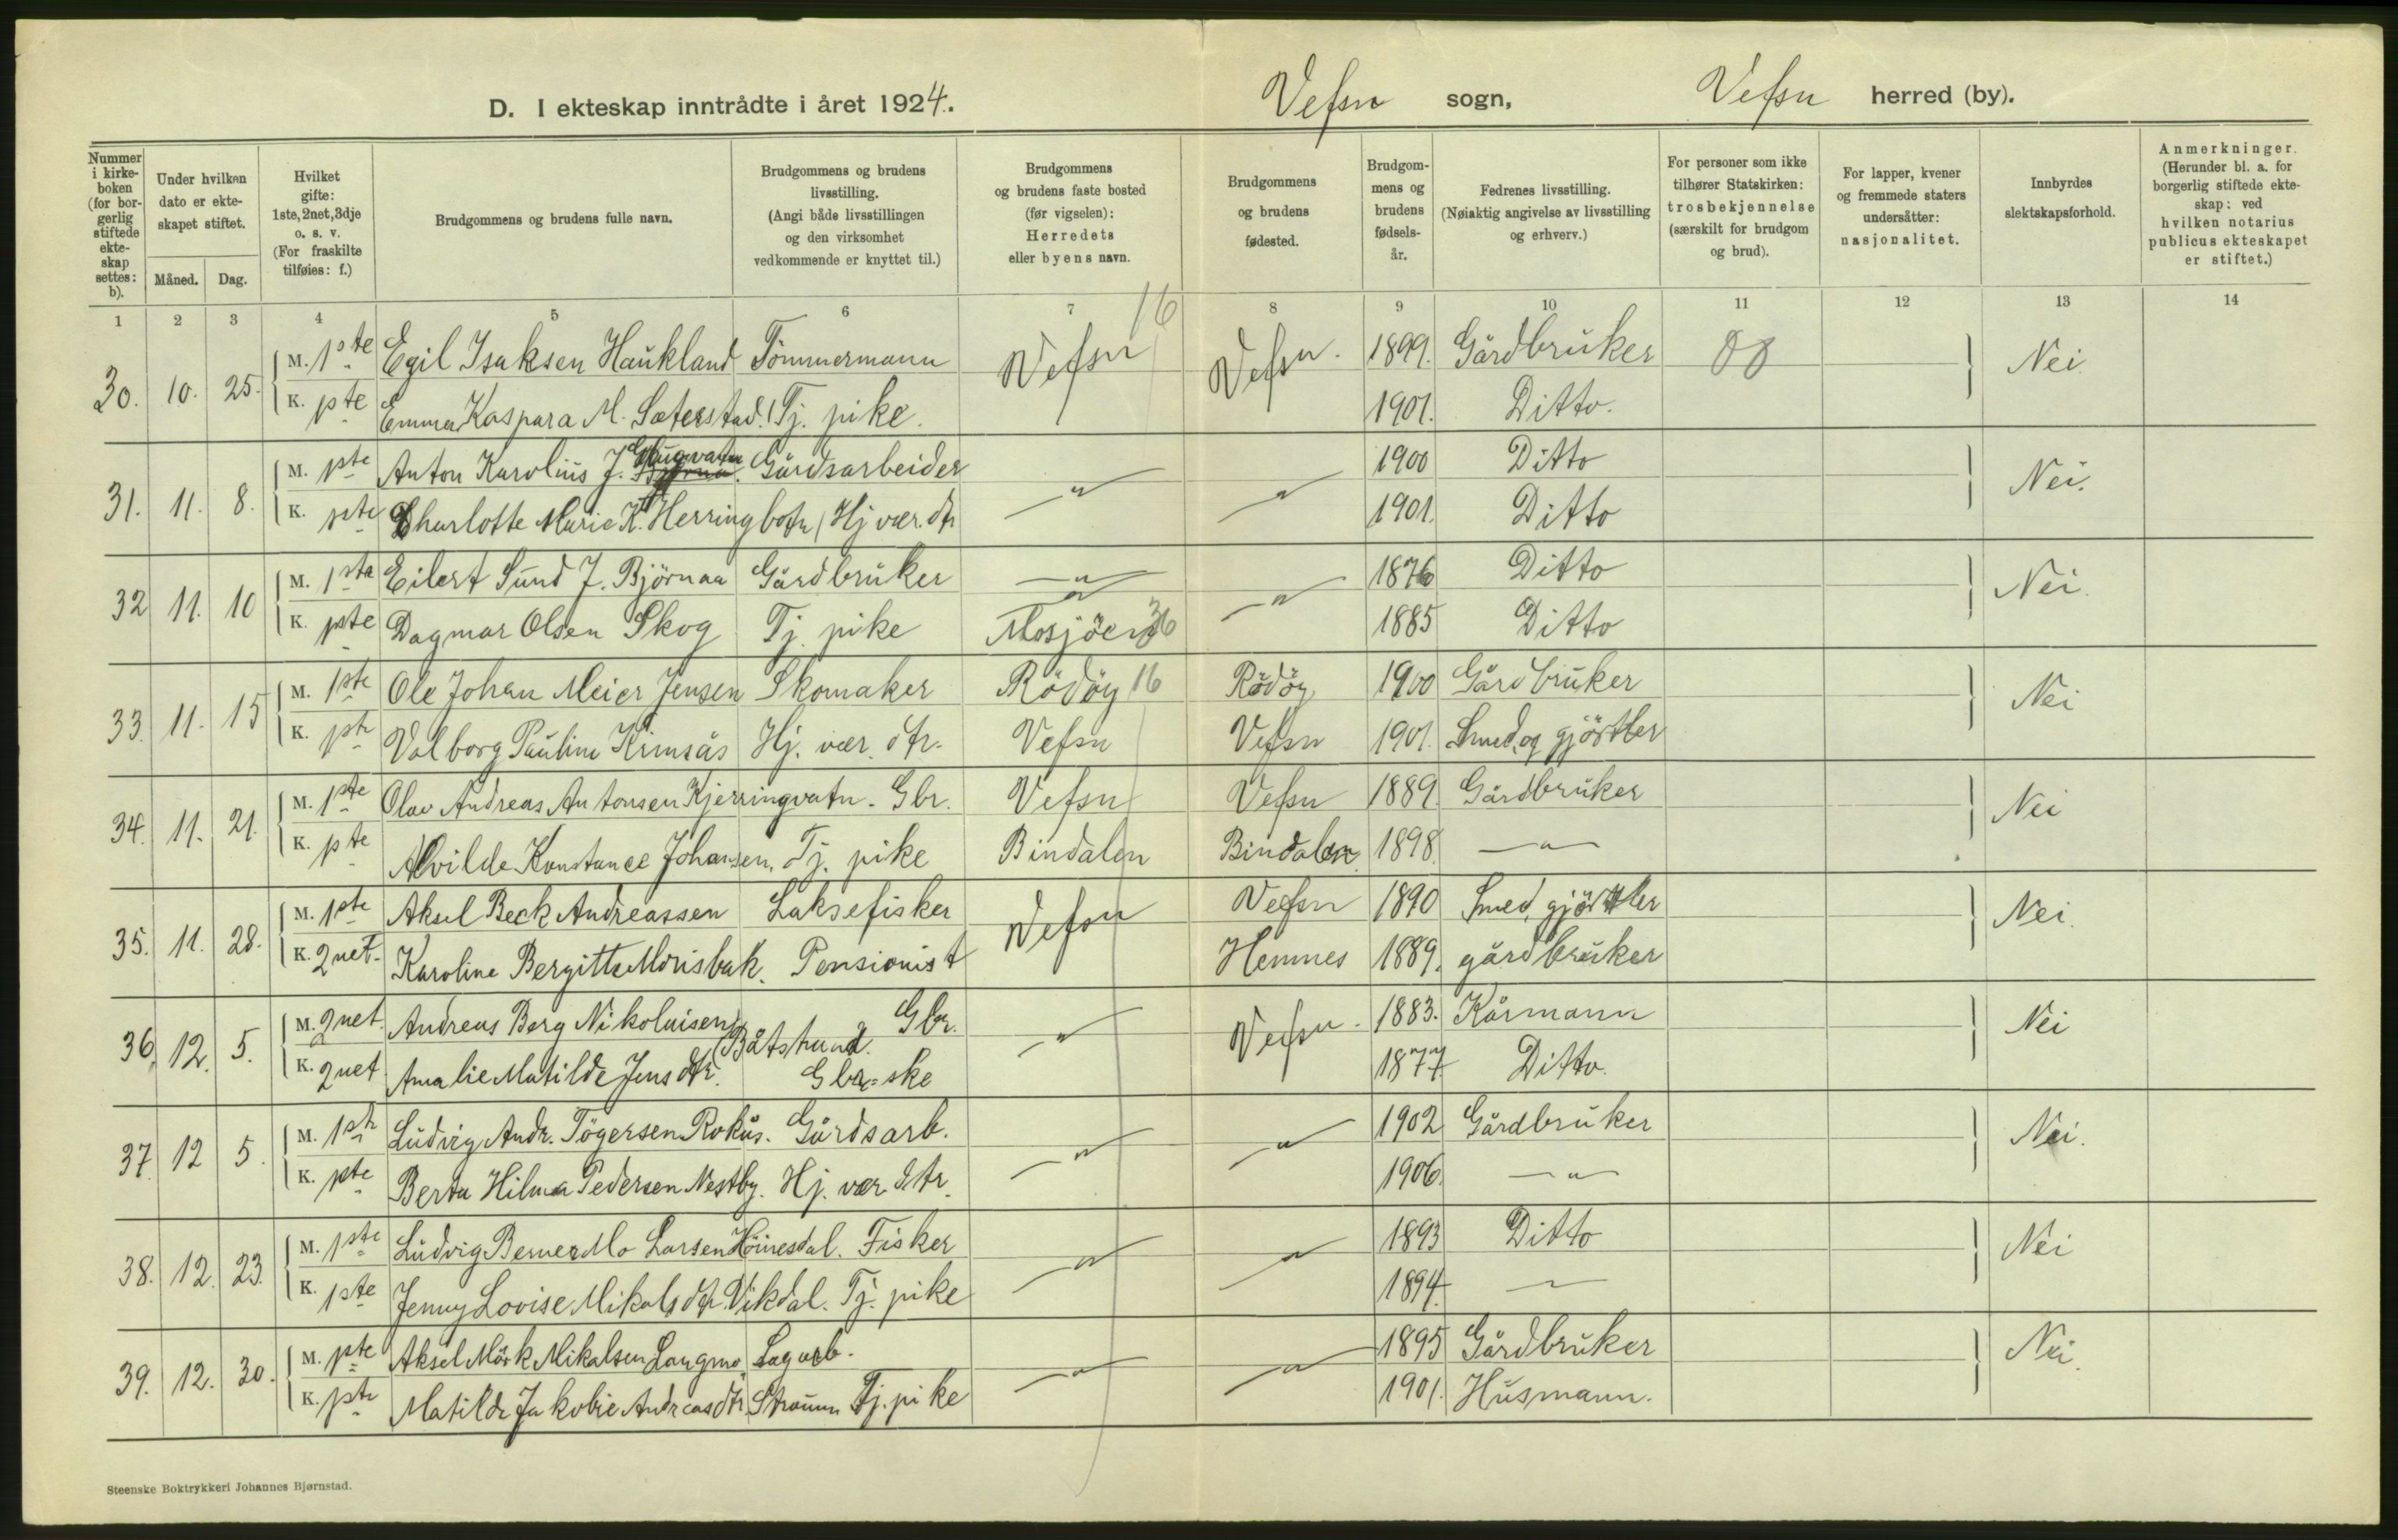 D. I ekteskap inntrådte i året 1924. Vefsn sogn, Vefsn herred (by).
Nummer i kirkeboken (for borgerlig stiftede ekteskap settes: b).
Under hvilken dato er ekteskapet stiftet.
Måned. Dag.
Hvilket gifte: 1ste, 2net, 3dje o. s. v. (For fraskilte tilføies: f.)
Brudgommens og brudens fulle navn.
Brudgommens og brudens livsstilling. (Angi både livsstillingen og den virksomhet vedkommende er knyttet til.)
Brudgommens og brudens faste bosted (før vigselen): Herredets eller byens navn.
Brudgommens og brudens fødested.
Brudgommens og brudens fødselsår.
Fedrenes livsstilling. (Nøiaktig angivelse av livsstilling og erhverv.)
For personer som ikke tilhører Statskirken: trosbekjennelse (særskilt for brudgom og brud).
For lapper, kvener og fremmede staters undersåtter: nasjonalitet.
Innbyrdes slektskapsforhold.
Anmerkninger. (Herunder bl. a. for borgerlig stiftede ekteskap: ved hvilken notarius publicus ekteskapet er stiftet.)
1 2 3 4 5 6 7 8 9 10 11 12 13 14
16
30. 10. 25. M. 1ste Egil Isaksen Haukland Tömmermann Vefsn Vefsn. 1899. Gårdbruker Nei
K. 1ste Emma Kaspara M. Sæterstad. Tj. pike. 1901. Ditto.
31. 11. 8. M. 1ste Anton Karolius J. Gårdsarbeider 〃 〃 1900 Ditto Nei.
K. 1ste Charlotte Marie K. Herringbotn Hj vær. dtr 1901. Ditto
32 11. 10 M. 1ste Eilert Sund J. Björnaa Gårdbruker 〃 〃 1876 Ditto Nei.
K. 1ste Dagmar Olsen Skog Tj. pike Mosjöen 36 1885 Ditto
33. 11. 15 M. 1ste Ole Johan Meier Jensen Skomaker Rödöy 16 Rödöy 1900 Gårdbruker Nei
K. 1ste Valborg Pauline Krinsås Hj. vær. dtr. Vefsn Vefsn 1901. Smed og gjörtler
34. 11. 21. M. 1ste Olav Andreas Antonsen Kjerringvatn. Gbr. Vefsn Vefsn 1889. Gårdbruker Nei
K. 1ste Alvilde Konstance Johansen. Tj. pike Bindalen Bindalen 1898. 〃
35. 11. 28. M. 1ste Aksel Beck Andreassen Laksefisker Vefsn Vefsn 1890 Smed, gjörtler Nei.
K. 2net. Karoline Bergitte Morisbak. Pensionist Hemnes 1889. gårdbruker
36. 12. 5. M. 2net. Andreas Berg Nikolaisen Gbr. 〃 Vefsn. 1883. Kårmann Nei
K. 2net Amalie Matilde Jensdtr. Gbr=ske 1877. Ditto.
37. 12 5. M. 1ste Ludvig Andr. Tögersen Rokås. Gårdsarb. 〃 〃 1902 Gårdbruker Nei.
K. 1ste Berta Hilma Pedersen Nestby. Hj. vær dtr. 1906. 〃
38. 12. 23. M. 1ste Ludvig Berner Mo Larsen Fisker 〃 〃 1893 Ditto Nei
K. 1ste Jenny Lovise Mikalsdtr. Vikdal. Tj. pike 1894. 〃
39. 12. 30. M. 1ste Aksel Mörk Mikalsen Langmo, Sagarb. 〃 〃 1895 Gårdbruker Nei.
K. 1ste Matilde Jakobie Andreasdtr. Straum Tj. pike 1901. Husmann.
Steenske Boktrykkeri Johannes Bjørnstad.